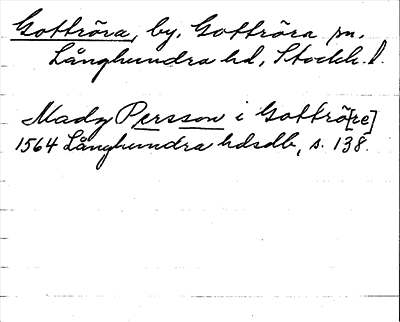 Gottröra, by, Gottröra sn.
Långhundra hd, Stockh. l.
Mady Persson i Gottrö[re]
1564 Långhundra hdsdb, s. 138.